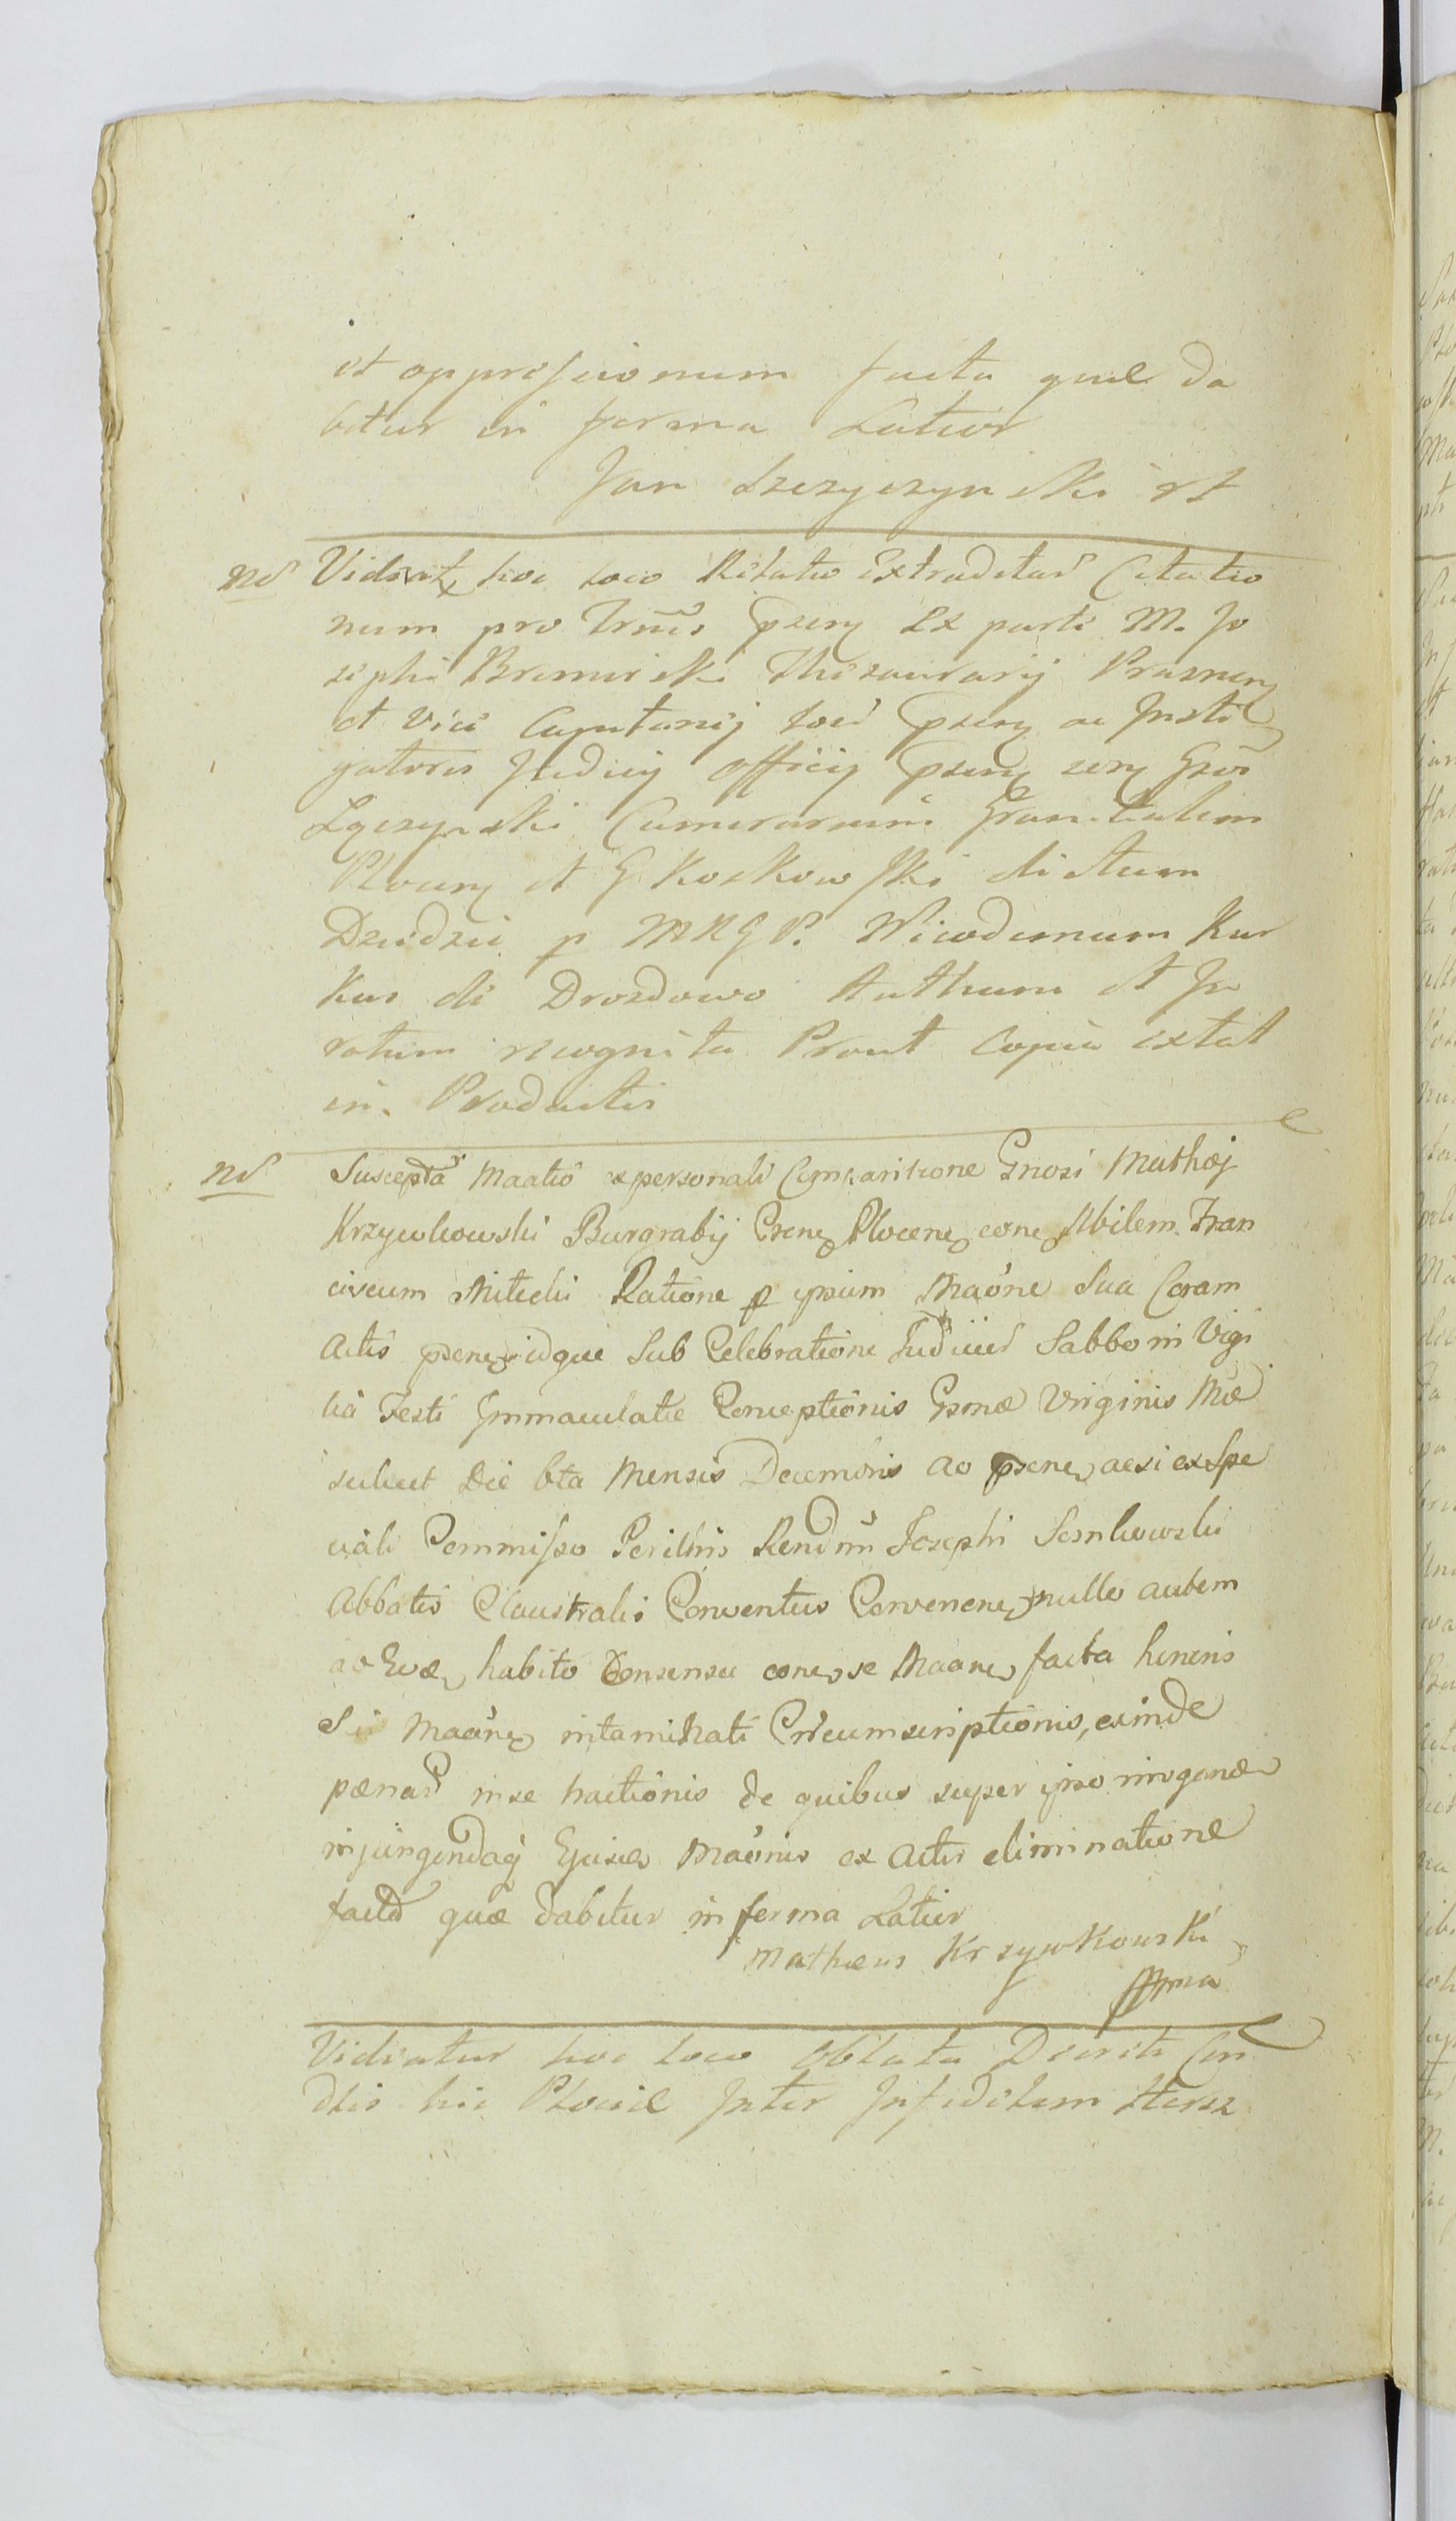 et oppressionum facta quae da
bitur in forma Latior
Jan
nd Videatr hoc loco Relatio Extraditar Citatio
num pro Trmis psen Ex parte M. Jo
sephi Thesaurarij Prasnen
et Vice Capitanij loci psen ac Insti
gatoris Judicij officij psen Gsos
Łączynski Camerarium Granitialem
Plocen et G Koskowski dictum
p MRGP. Nicodemum Kur
kus de Drozdowo Authum et Ju
ratum recognita Prout Copia extat
in. Productis
nd Suscepta Maatio ex personali Comparitione Gnosi Mathæj
Krzywkowski Burgrabij Csene Plocene cone Nbilem. Fran
ciscum Ratione p ipsum Maone sua Coram
Actis psene idque Sub Celebratione Judiiier Sabbo in Vigi
lia Festi Immaculatæ Conceptionis Gsmæ Virginis Mæ
scilicet Die 6ta Mensis Decembris ao psene aexi ex Spe
ciali Commisso Perillris Rendmi Josephi
Abbatis Claustralis Conventus Cervenene nullo autem
ao habito Consensu cone se Maane facta
Maane intaminati Circumscriptionis, exinde
pænar in se tractionis de quibus super ipso irroganæ
injungendaq Ejusce Maonis ex Actis eliminatione
facta quæ dabitur in forma Latior
Mathæus Krzywkowski
Videatur hoc loco Oblata Decreti Con
dtis hic Plociæ Inter Infidelem Hersz